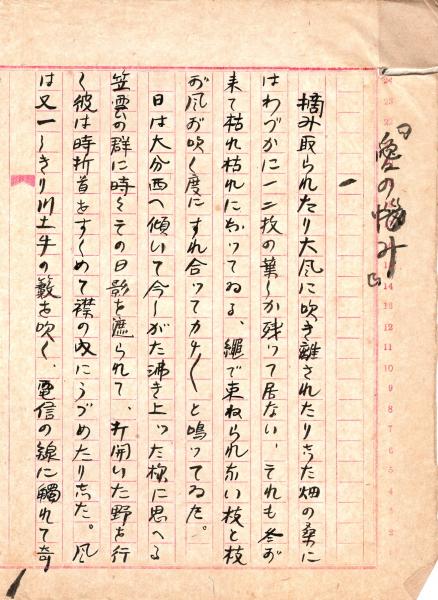 『愛の悩み』
一
摘み取られたり大風に吹き離されたりした畑の桑に
はわづかに一二枚の葉しか残つて居ない、それも冬が
来て枯れ枯れになつてゐる、繩で束ねられない枝と枝
が風が吹く度にすれ合つてカサ〱と鳴つてゐた。
日は大分西へ傾いて今しがた沸き上つた様に思へる
笠雲の群に時々その日影を遮られて、打開いた野を行
く彼は時折首をすくめて襟の内にうづめたりした。風
は又一しきり川土手の藪を吹く、電信の線に觸れて奇